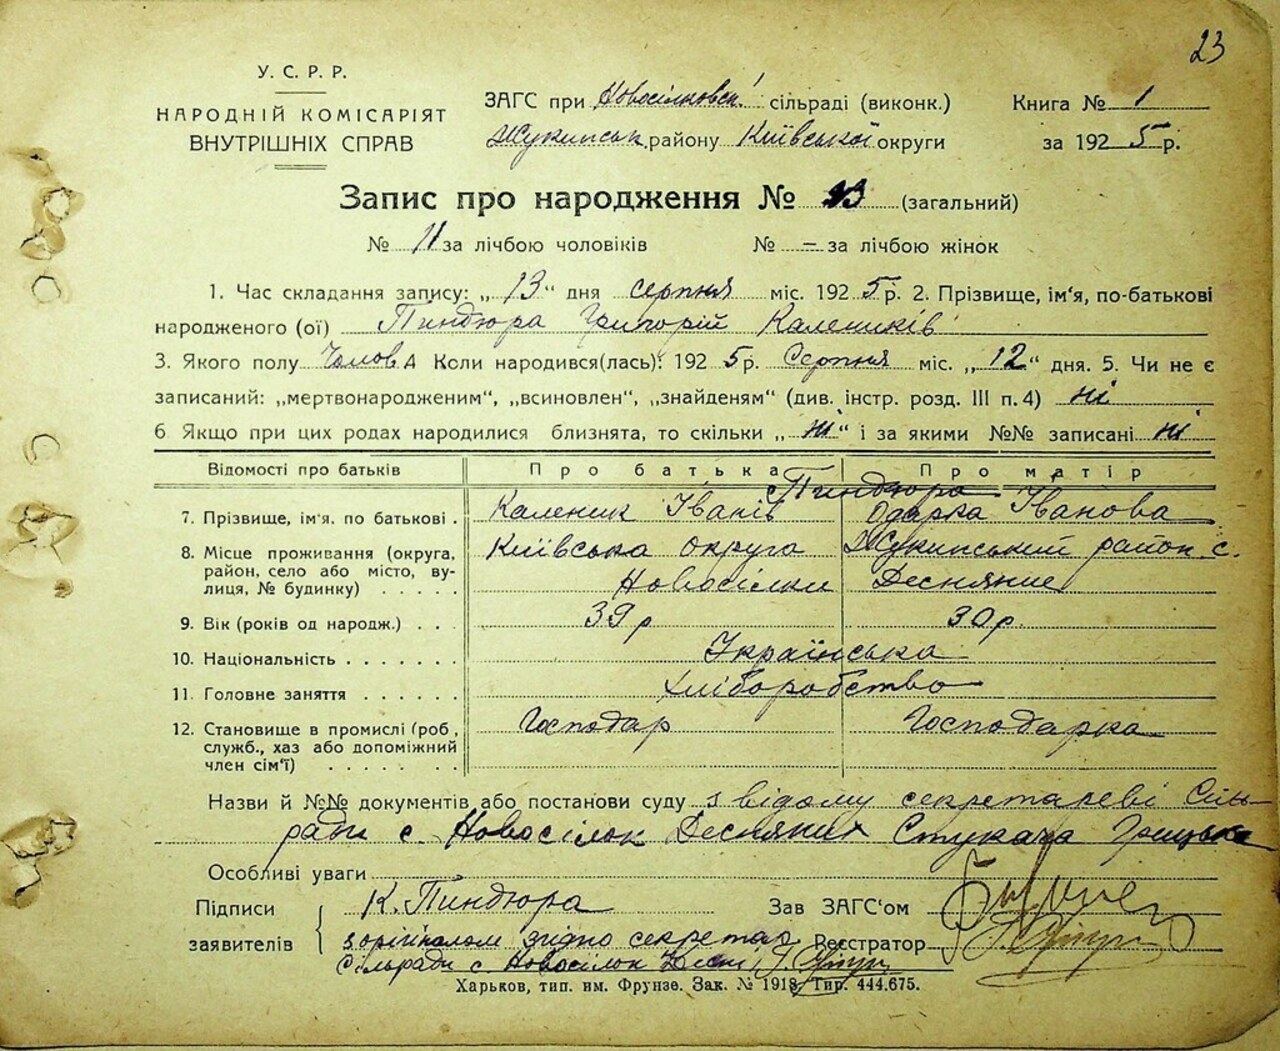 23
У. С. Р. Р.
НАРОДНІЙ КОМІСАРІЯТ
ВНУТРІШНІХ СПРАВ
ЗАГС при Новосілковськ. сільраді (виконк.)
Жукинськ. району Київської округи
Книга № 1
за 1925 р.
Запис про народження № 23 (загальний)
№ 11 за лічбою чоловіків № – за лічбою жінок
1. Час складання запису: „13“ дня серпня міс. 1925 р. 2. Прізвище, ім'я, по-батькові
народженого (ої) Пиндюра Григорій Калеників
3. Якого полу Чолов. 4 Коли народився(лась): 1925 р. Серпня міс. „12“ дня. 5. Чи не є
записаний: „мертвонародженим“, „всиновлен“, „знайденям“ (див. інстр. розд. III п. 4) ні
6 Якщо при цих родах народилися близнята, то скільки „ні“ і за якими №№ записані ні
Відомості про батьків Про батька Про матір
Пиндюра
7. Прізвище, ім'я. по батькові . Каленик Іванів Одарка Іванова
8. Місце проживання (округа, Київська округа Жукинський район с.
район, село або місто, ву-
лиця, № будинку) . . . . . Новосілки Десняние
9. Вік (років од народж.) . . . 39 р 30 р.
10. Національність . . . . . . . Українська
11. Головне заняття . . . . . . Хліборобство
12. Становище в промислі (роб, Господар Господарка
служб., хаз або допоміжний
член сім'ї) . . . . . . .
Назви й №№ документів або постанови суду з відому секретареві Сіль-
ради с. Новосілок Десняних Стукача Грицька
Особливі уваги
Підписи
заявителів
К. Пиндюра
Зав ЗАГС'ом
з орігіналом згідно секретар
Реєстратор
Сільради с. Новосілок Десн.
Харьков, тип. им. Фрунзе. Зак. № 1918 Тир. 444.675.